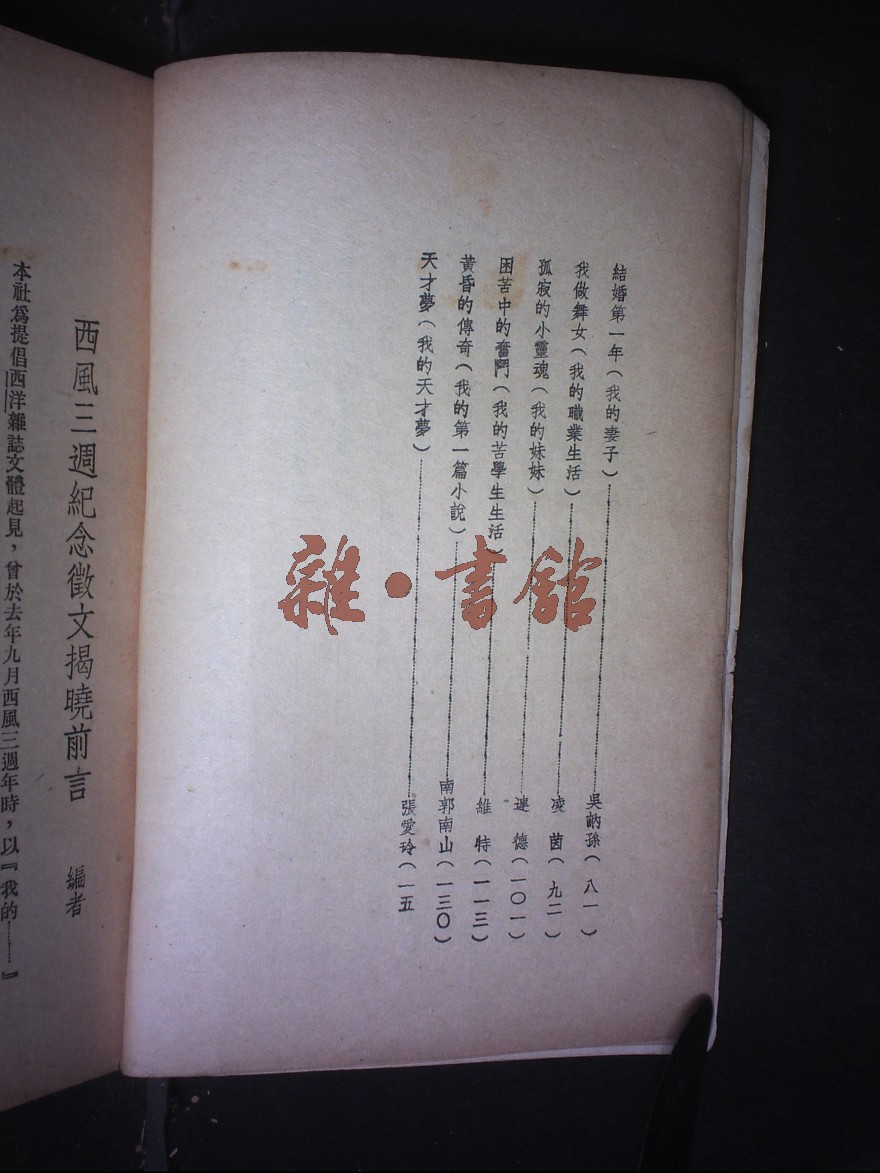 結婚第一年（我的妻子）……吳訥孫（八一）
我做舞女（我的職業生活）……凌茵（九二）
孤寂的小靈魂（我的妹妹）……連德（一〇一）
困苦中的奮鬥（我的苦學生生活）……維特（一一三）
黃昏的傳奇（我的第一篇小說）……南郭南山（一三〇）
天才夢（我的天才夢）……張愛玲（一五
西風三週紀念徵文揭曉前言　編者
本社爲提倡西洋雜誌文體起見，曾於去年九月西風三週年時，以『我的……』
雜·書館